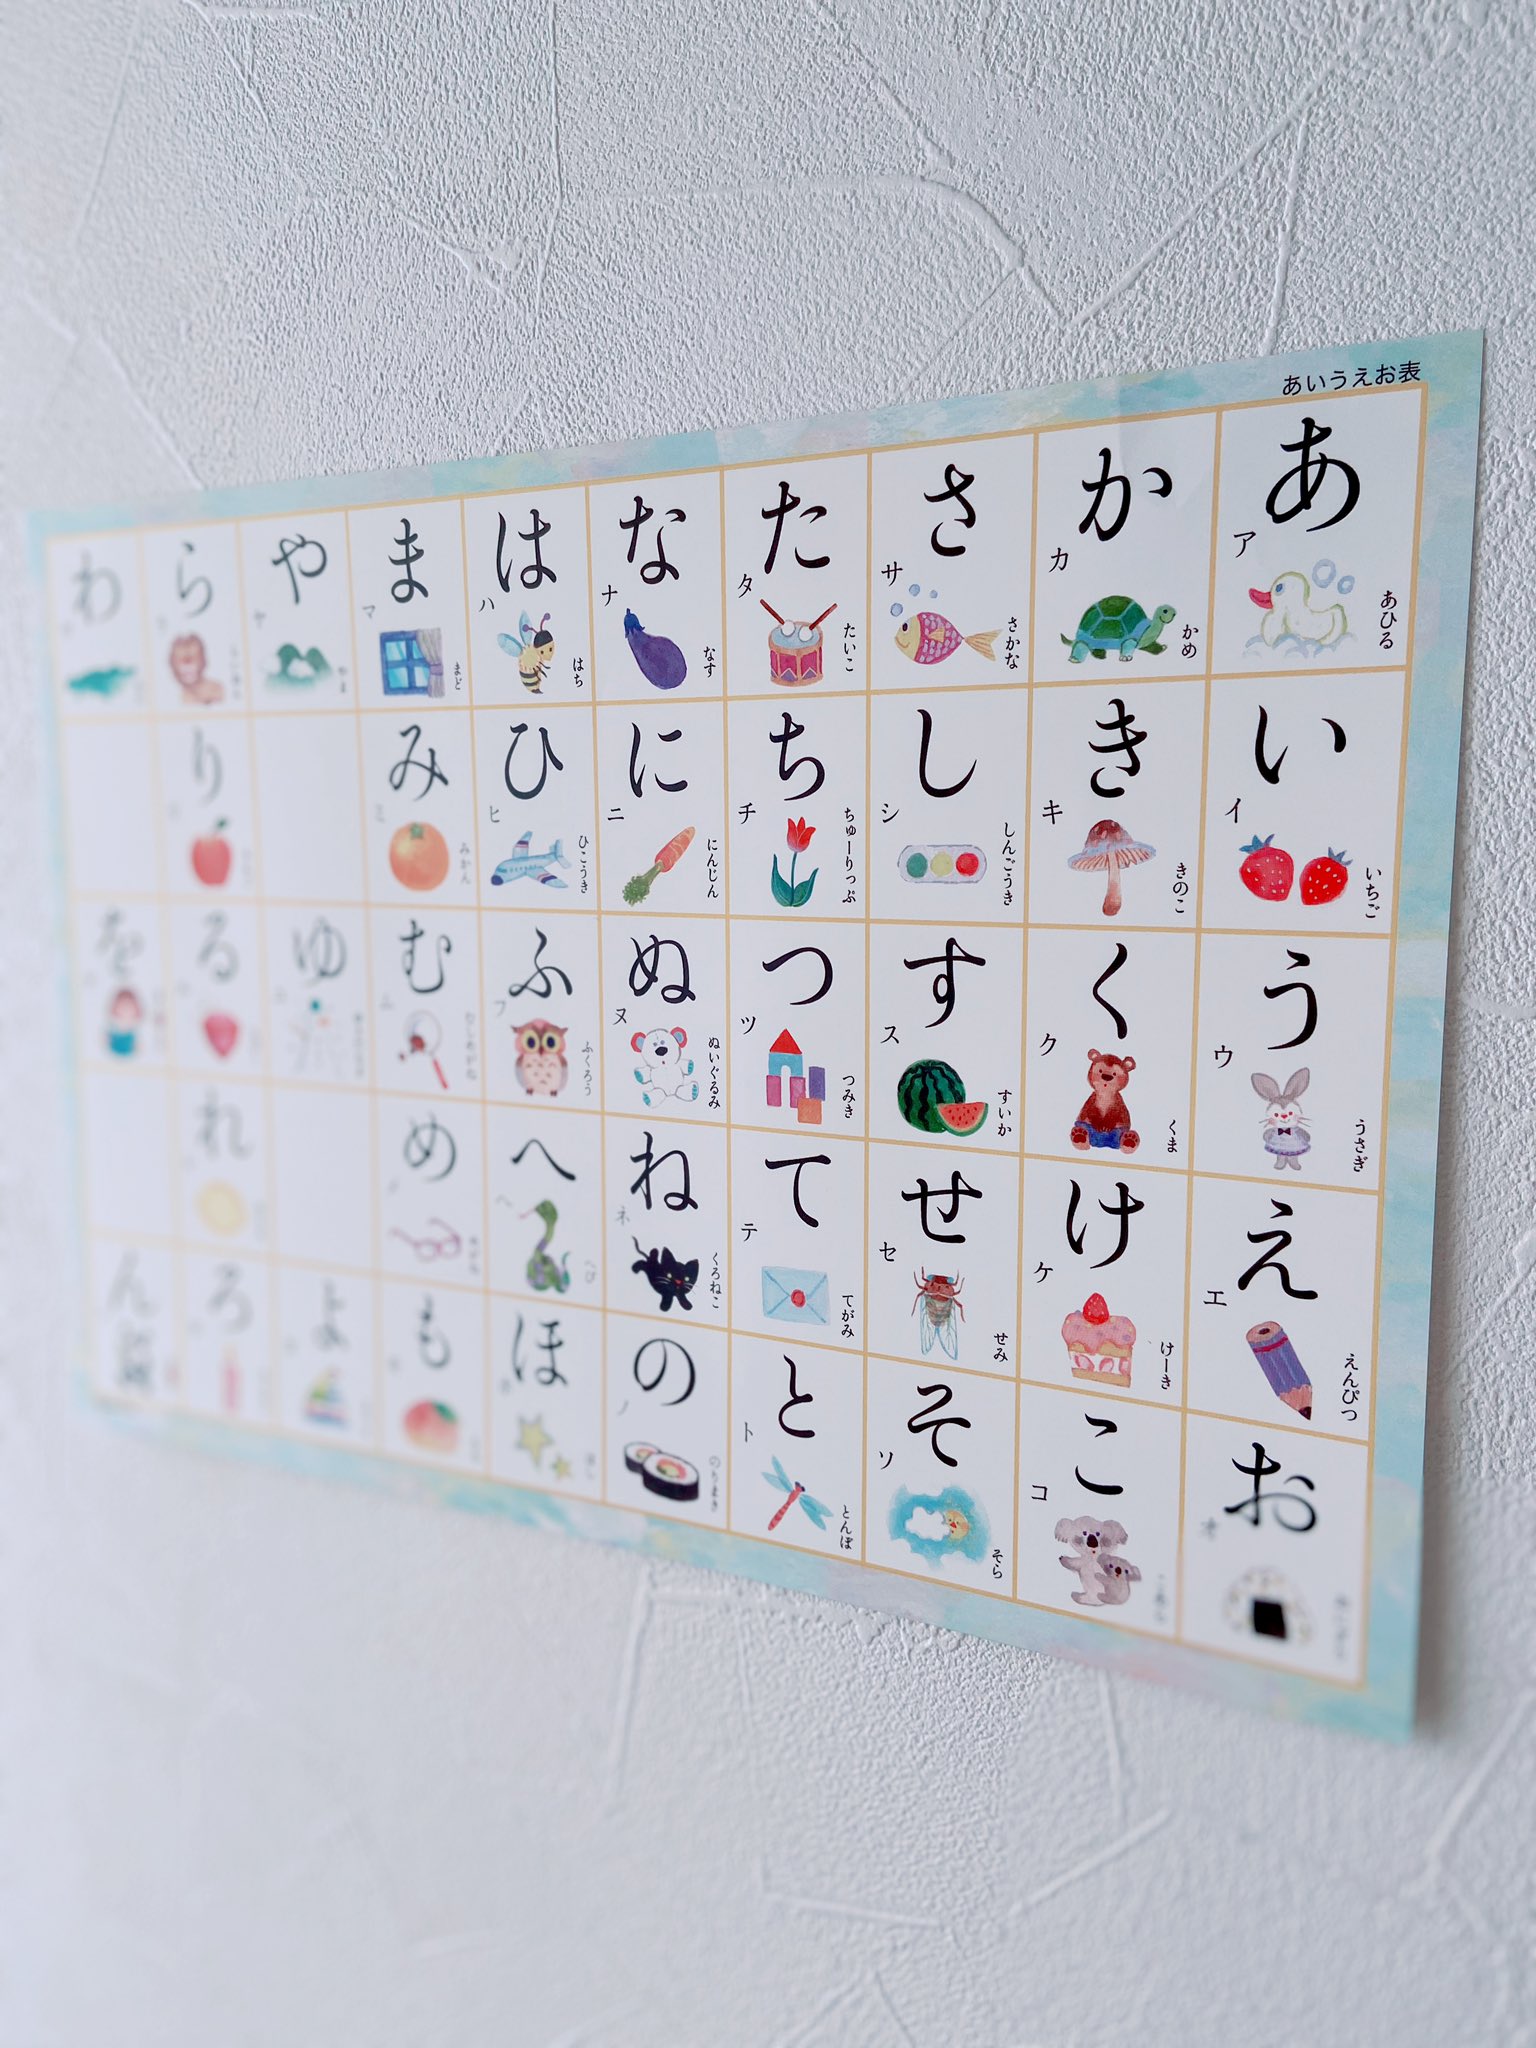 あいうえお表
あ ア あひる
い イ いちご
う ウ うさぎ
え エ えんぴつ
お オ
か カ かめ
き キ きのこ
く ク くま
け ケ けーき
こ コ
さ サ さかな
し シ しんごうき
す ス すいか
せ セ せみ
そ ソ そら
た タ たいこ
ち チ ちゅーりっぷ
つ ツ つみき
て テ てがみ
と ト とんぼ
な ナ なす
に ニ にんじん
ぬ ヌ ぬいぐるみ
ね ネ くろねこ
の ノ のりまき
は ハ はち
ひ ヒ ひこうき
ふ フ ふくろう
へ ヘ へび
ほ
ま マ まど
み ミ みかん
む ム
め
も
や ヤ やま
ゆ
よ
ら
り
る
れ
ろ
わ
を
ん